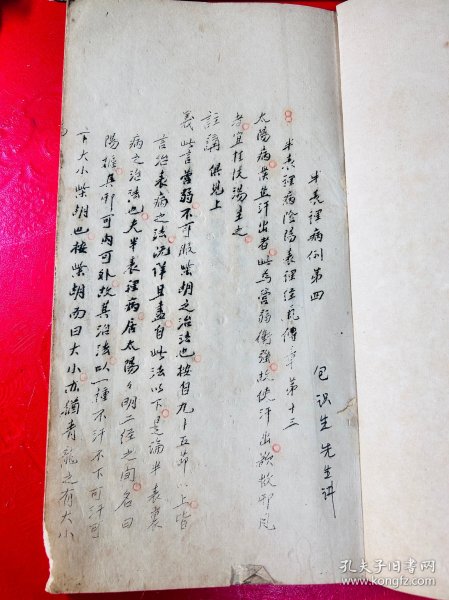 半表裡病例第四　包识生先生评
半表裡病陰陽表裡経氣傳章第十三
太陽病發热汗出者此為营弱衛強故使汗出欲救邪風
者宜桂枝湯主之
註講 俱見上
義此言营弱不可服柴胡之治法也按自九十五節以上皆
言治表病之法诜详且盡自此法以下是論半表裏
病之治法也夫半表裡病居太陽々明二经之间名曰
陽樞其邪可内可外故其治法以一種不汗不下可汗可
下大小柴胡也按柴胡而曰大小亦猶青龍之有大小
孔夫子旧书网
www.kongfz.com